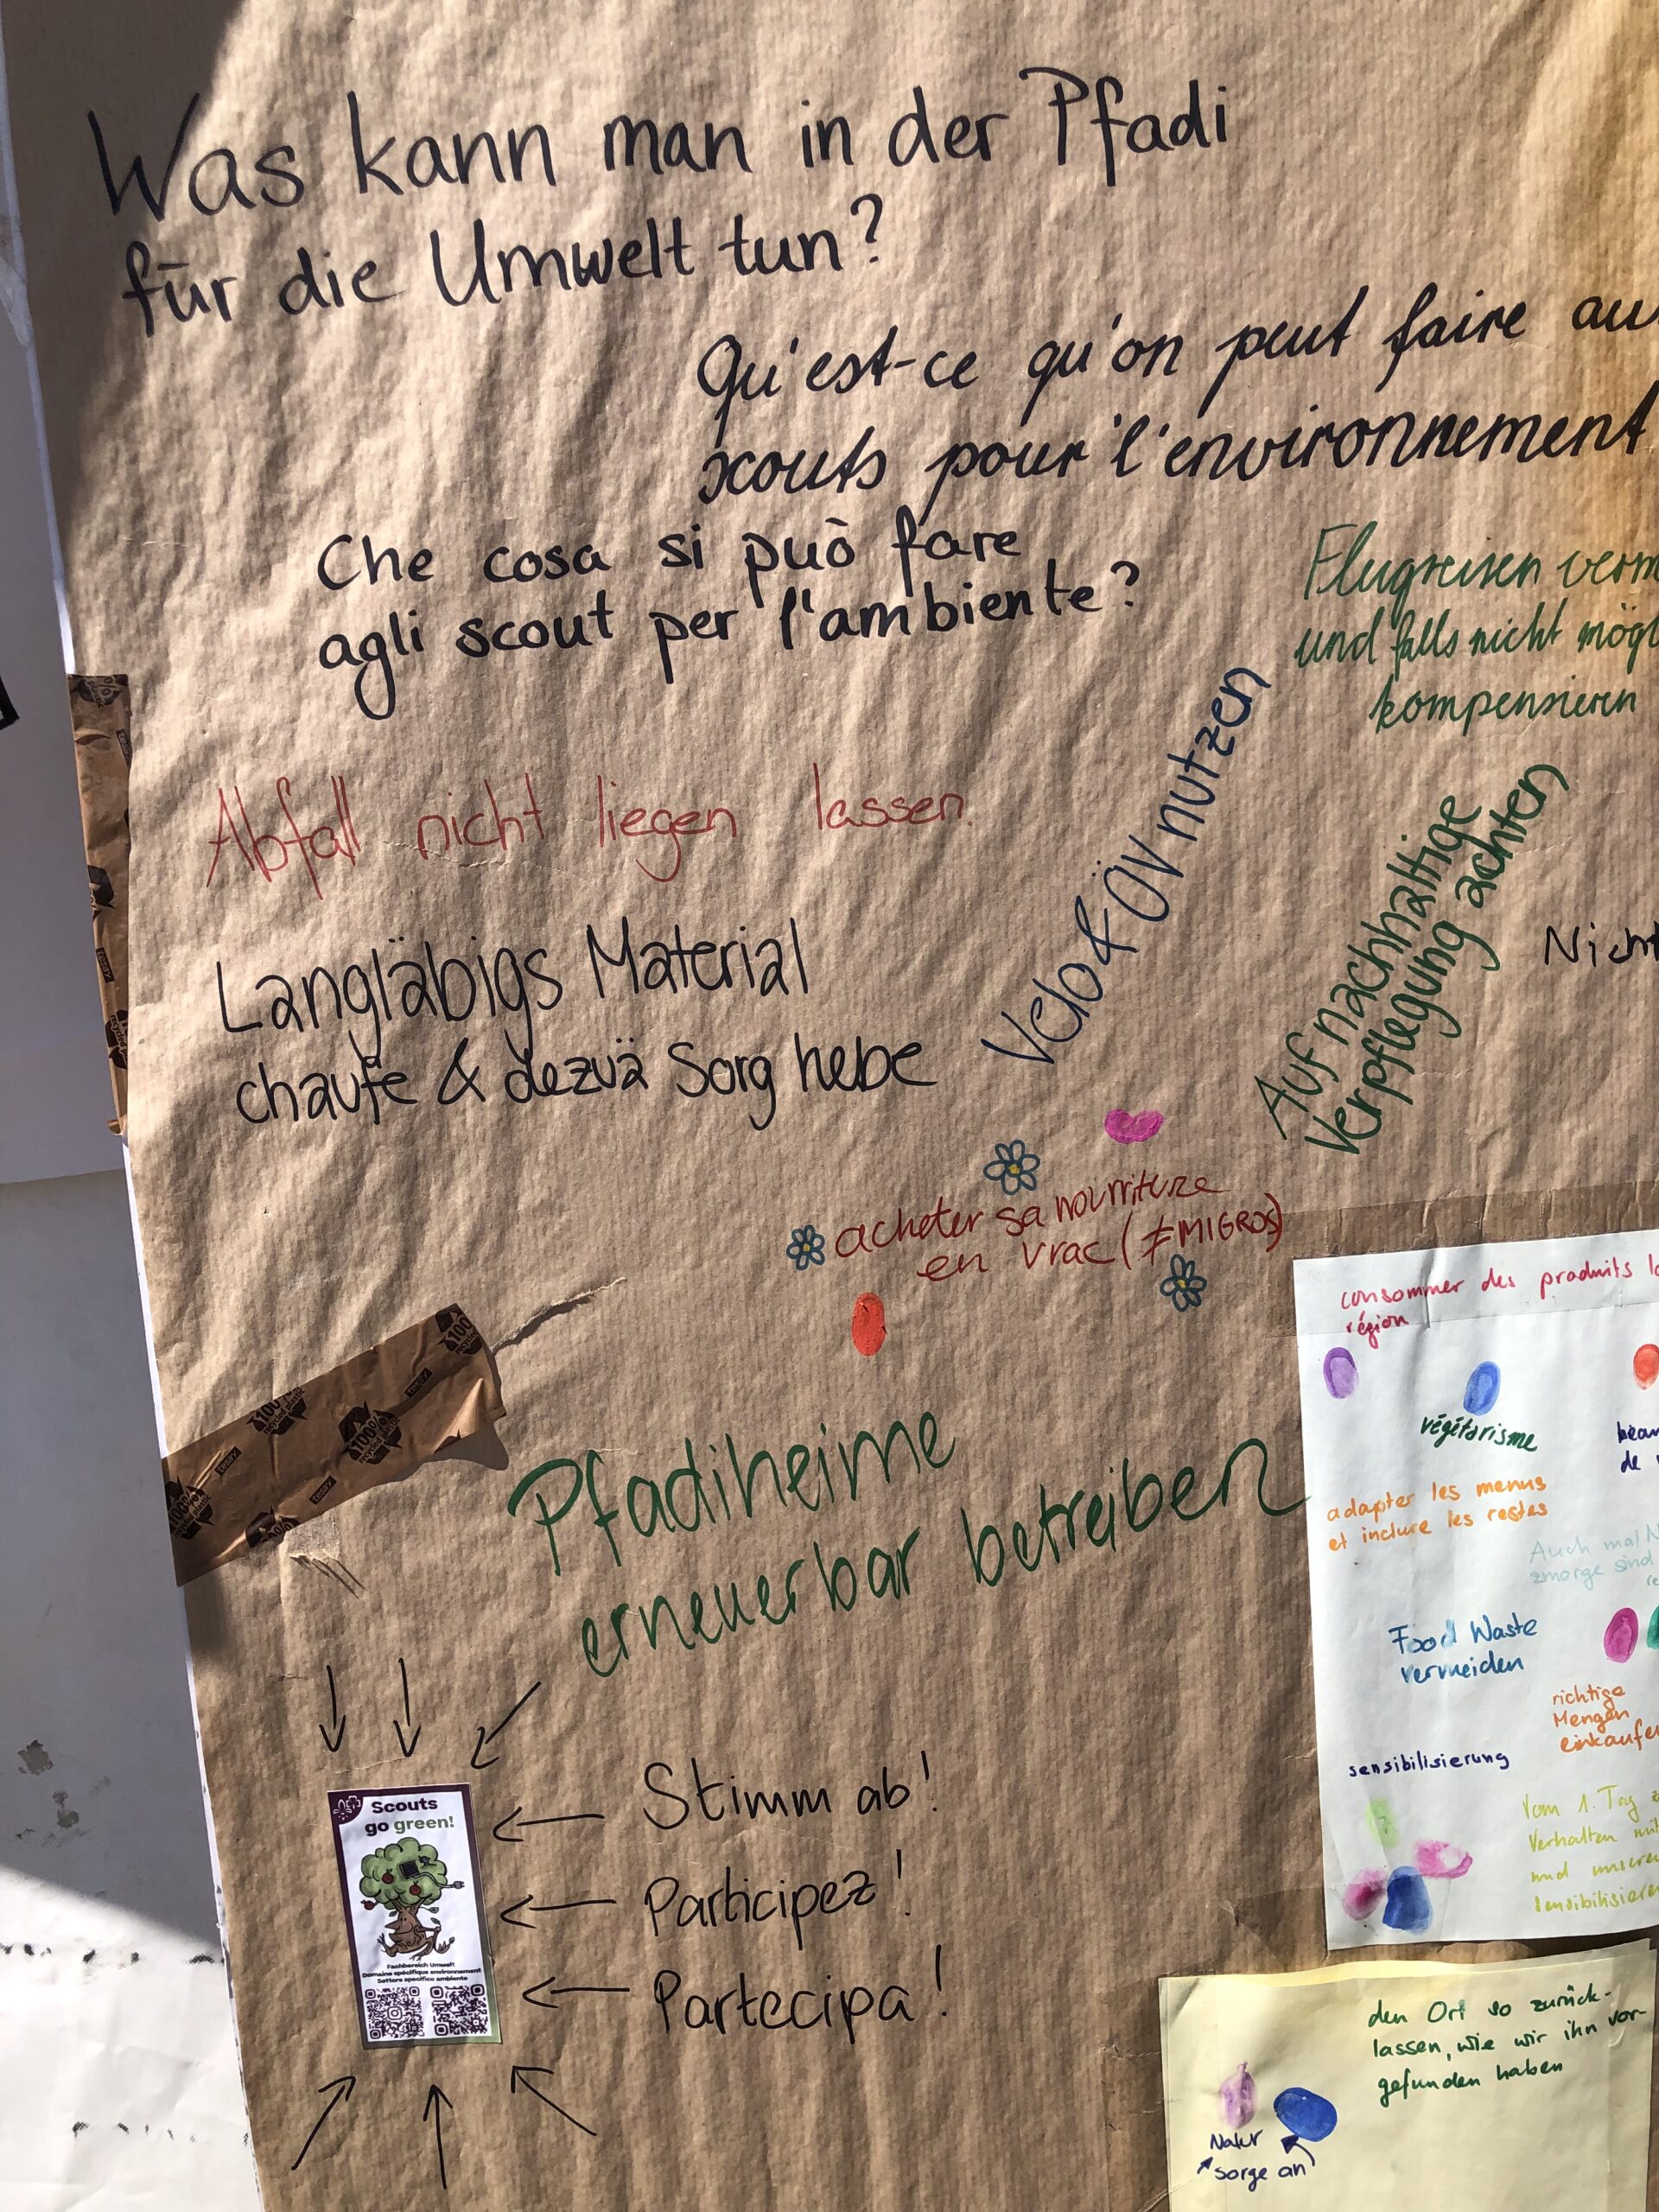 Was kann man in der Pfadi
für die Umwelt tun?
Qu'est-ce qu'on peut faire au
scouts pour l'environnement
Che cosa si può fare
agli scout per l'ambiente?
Flugreisen verm
und falls nicht mögl
kompensieren
Abfall nicht liegen lassen.
Velo & ÖV nutzen
Auf nachhaltige
Verpflegung achten
Nicht
Langläbigs Material
chaufe & dezuä Sorg hebe
acheter sa nourriture
en vrac (≠MIGROS)
Pfadiheime
erneuerbar betreiben
consommer des produits
région
végétarisme
de
adapter les menus
et inclure les restes
Auch mal
zmorge sind
Food Waste
vermeiden
richtige
Mengen
einkaufe
sensibilisierung
Vom 1. Tag
Verhalten mit
und unsere
sensibilisieren
Stimm ab!
Participez!
Partecipa!
Scouts
go green!
Fachbereich Umwelt
Domaine spécifique environnement
Settore specifico ambiente
den Ort so zurück-
lassen, wie wir ihn vor-
gefunden haben
Natur
sorge an
100%
recycled plastic